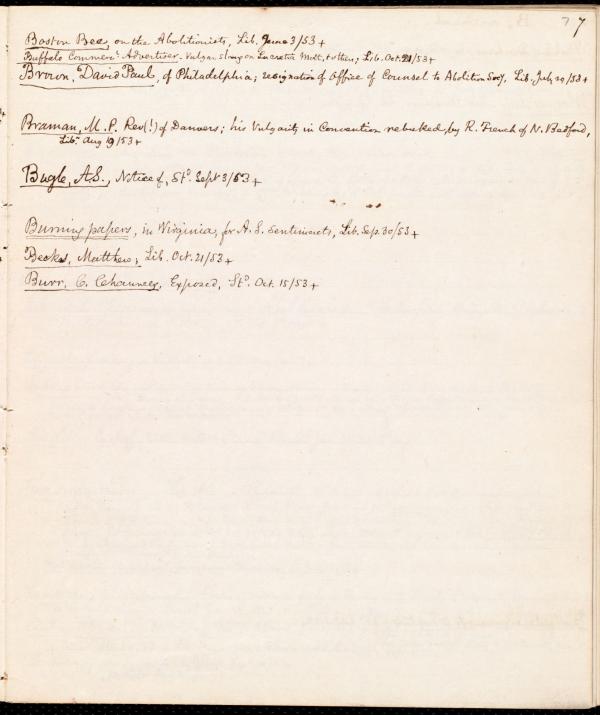 7 7
Boston Bee, on the Abolitionists, Lib. June 3/53 +
Buffalo Commerc'l Advertiser. Vulgar slang on Lucretia Mott, & others; Lib. Oct. 21/53 +
Brown, David Paul, of Philadelphia; resignation of Office of Counsel to Abolition Soc'y, Lib. July 29/53 +
Braman, M. P. Rev(!) of Danvers; his Vulgarity in Convention rebuked, by R. French of N. Bedford,
Lib. Aug 19/53 +
Bugle, A.S., Notice of, Std. Sept 3/53 +
Burning papers, in Virginia, for A. S. sentiments, Lib. Sep. 30/53 +
Matthew, Lib. Oct. 21/53 +
Burr, C. Chauncey, Exposed, Std. Oct. 15/53 +